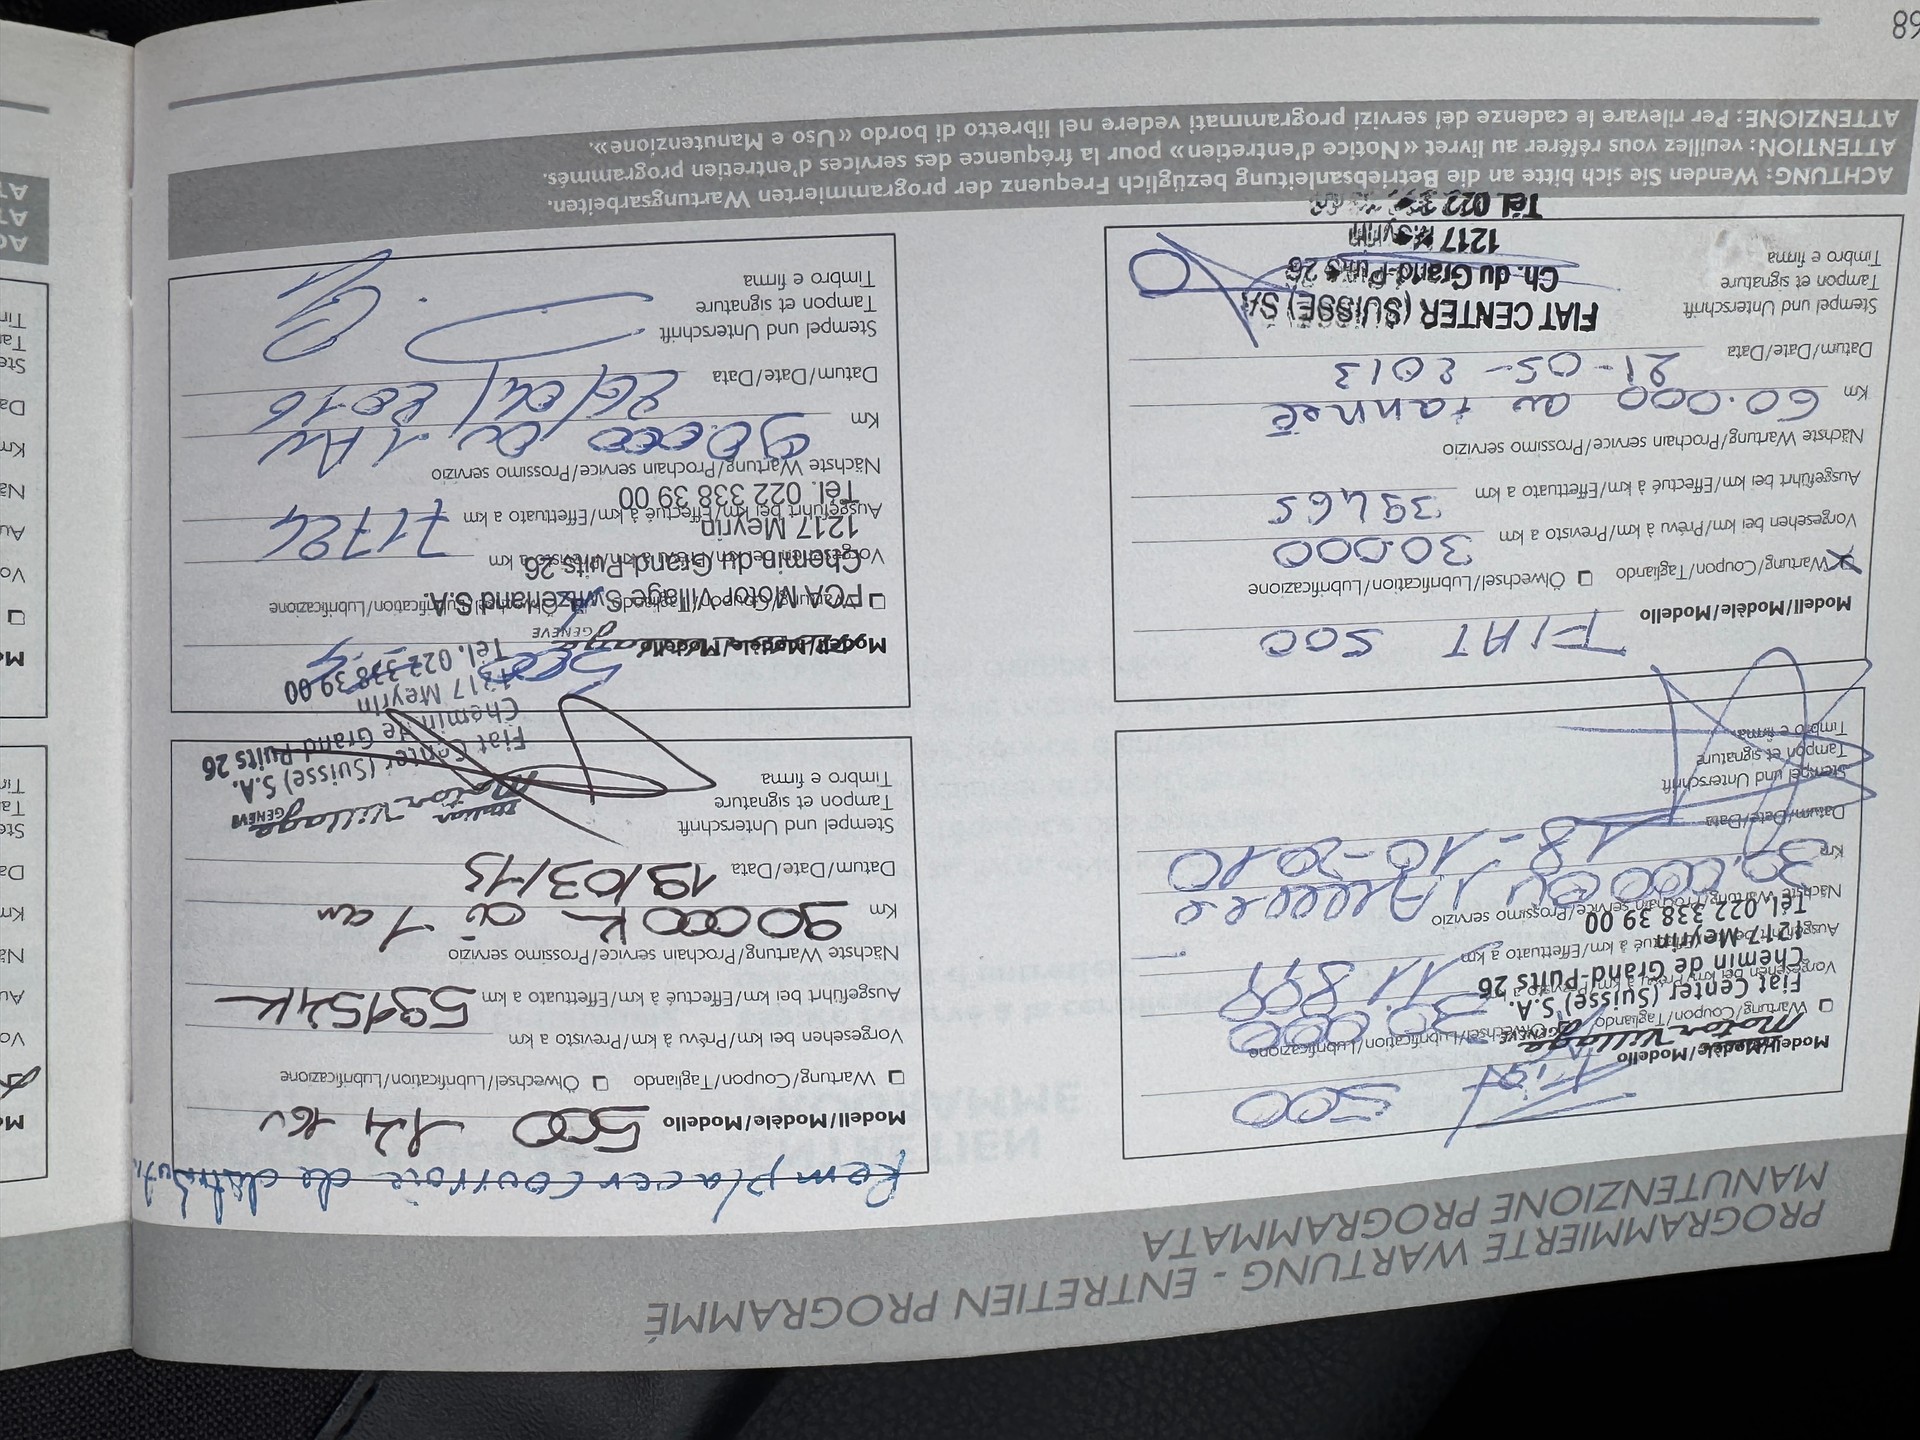 PROGRAMMIERTE WARTUNG - ENTRETIEN PROGRAMMÉ
MANUTENZIONE PROGRAMMATA
Modell/Modèle/Modello Fiat 500
Wartung/Coupon/Tagliando Ölwechsel/Lubrification/Lubrificazione
Vorgesehen bei km/Prévu à km/Previsto a km 30.000
Ausgeführt bei km/Effectué à km/Effettuato a km
Nächste Wartung/Prochain service/Prossimo servizio
Km
Datum/Date/Data 18-10-2010
Stempel und Unterschrift
Tampon et signature
Timbro e firma
Motor Village
GENEVE
Fiat Center (Suisse) S.A.
Chemin de Grand-Puits 26
1217 Meyrin
Tél. 022 338 39 00
Modell/Modèle/Modello FIAT 500
Wartung/Coupon/Tagliando Ölwechsel/Lubrification/Lubrificazione
Vorgesehen bei km/Prévu à km/Previsto a km 30.000
Ausgeführt bei km/Effectué à km/Effettuato a km 39465
Nächste Wartung/Prochain service/Prossimo servizio
Km 60.000 ou 1 année
Datum/Date/Data 21-05-2013
Stempel und Unterschrift
Tampon et signature
Timbro e firma
FIAT CENTER (SUISSE) SA
Ch. du Grand-Puits 26
1217 Meyrin
Tél. 022
Remplacer courroie de
Modell/Modèle/Modello 500 1.4 16v
Wartung/Coupon/Tagliando Ölwechsel/Lubrification/Lubrificazione
Vorgesehen bei km/Prévu à km/Previsto a km
Ausgeführt bei km/Effectué à km/Effettuato a km 59154K
Nächste Wartung/Prochain service/Prossimo servizio
Km 90000K ou 1 an
Datum/Date/Data 19/03/15
Stempel und Unterschrift
Tampon et signature
Timbro e firma
Italian Motor Village
GENEVE
Fiat Center (Suisse) S.A.
Chemin de Grand-Puits 26
1217 Meyrin
Tél. 022 338 39 00
Modell/Modèle/Modello 500
GENEVE
Wartung/Coupon/Tagliando Ölwechsel/Lubrification/Lubrificazione
FCA Motor Village Switzerland S.A.
Vorgesehen bei km/Prévu à km/Previsto a km
Chemin du Grand-Puits 26
Ausgeführt bei km/Effectué à km/Effettuato a km 71724
1217 Meyrin
Tél. 022 338 39 00
Nächste Wartung/Prochain service/Prossimo servizio
Km 90.000 ou 1 AN
Datum/Date/Data 26/04/2016
Stempel und Unterschrift
Tampon et signature
Timbro e firma
ACHTUNG: Wenden Sie sich bitte an die Betriebsanleitung bezüglich Frequenz der programmierten Wartungsarbeiten.
ATTENTION: veuillez vous référer au livret «Notice d'entretien» pour la fréquence des services d'entretien programmés.
ATTENZIONE: Per rilevare le cadenze dei servizi programmati vedere nel libretto di bordo «Uso e Manutenzione».